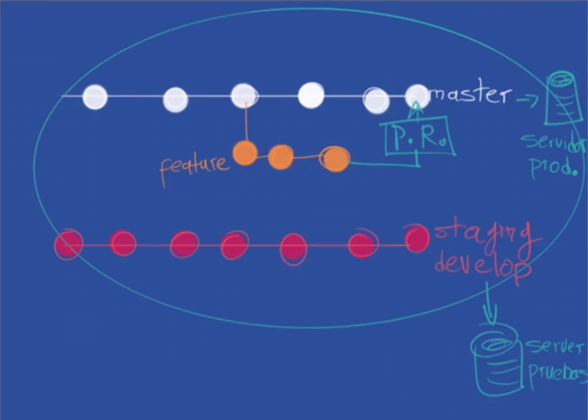 master
servidor
prod.
P.R.
feature
staging
develop
server
pruebas